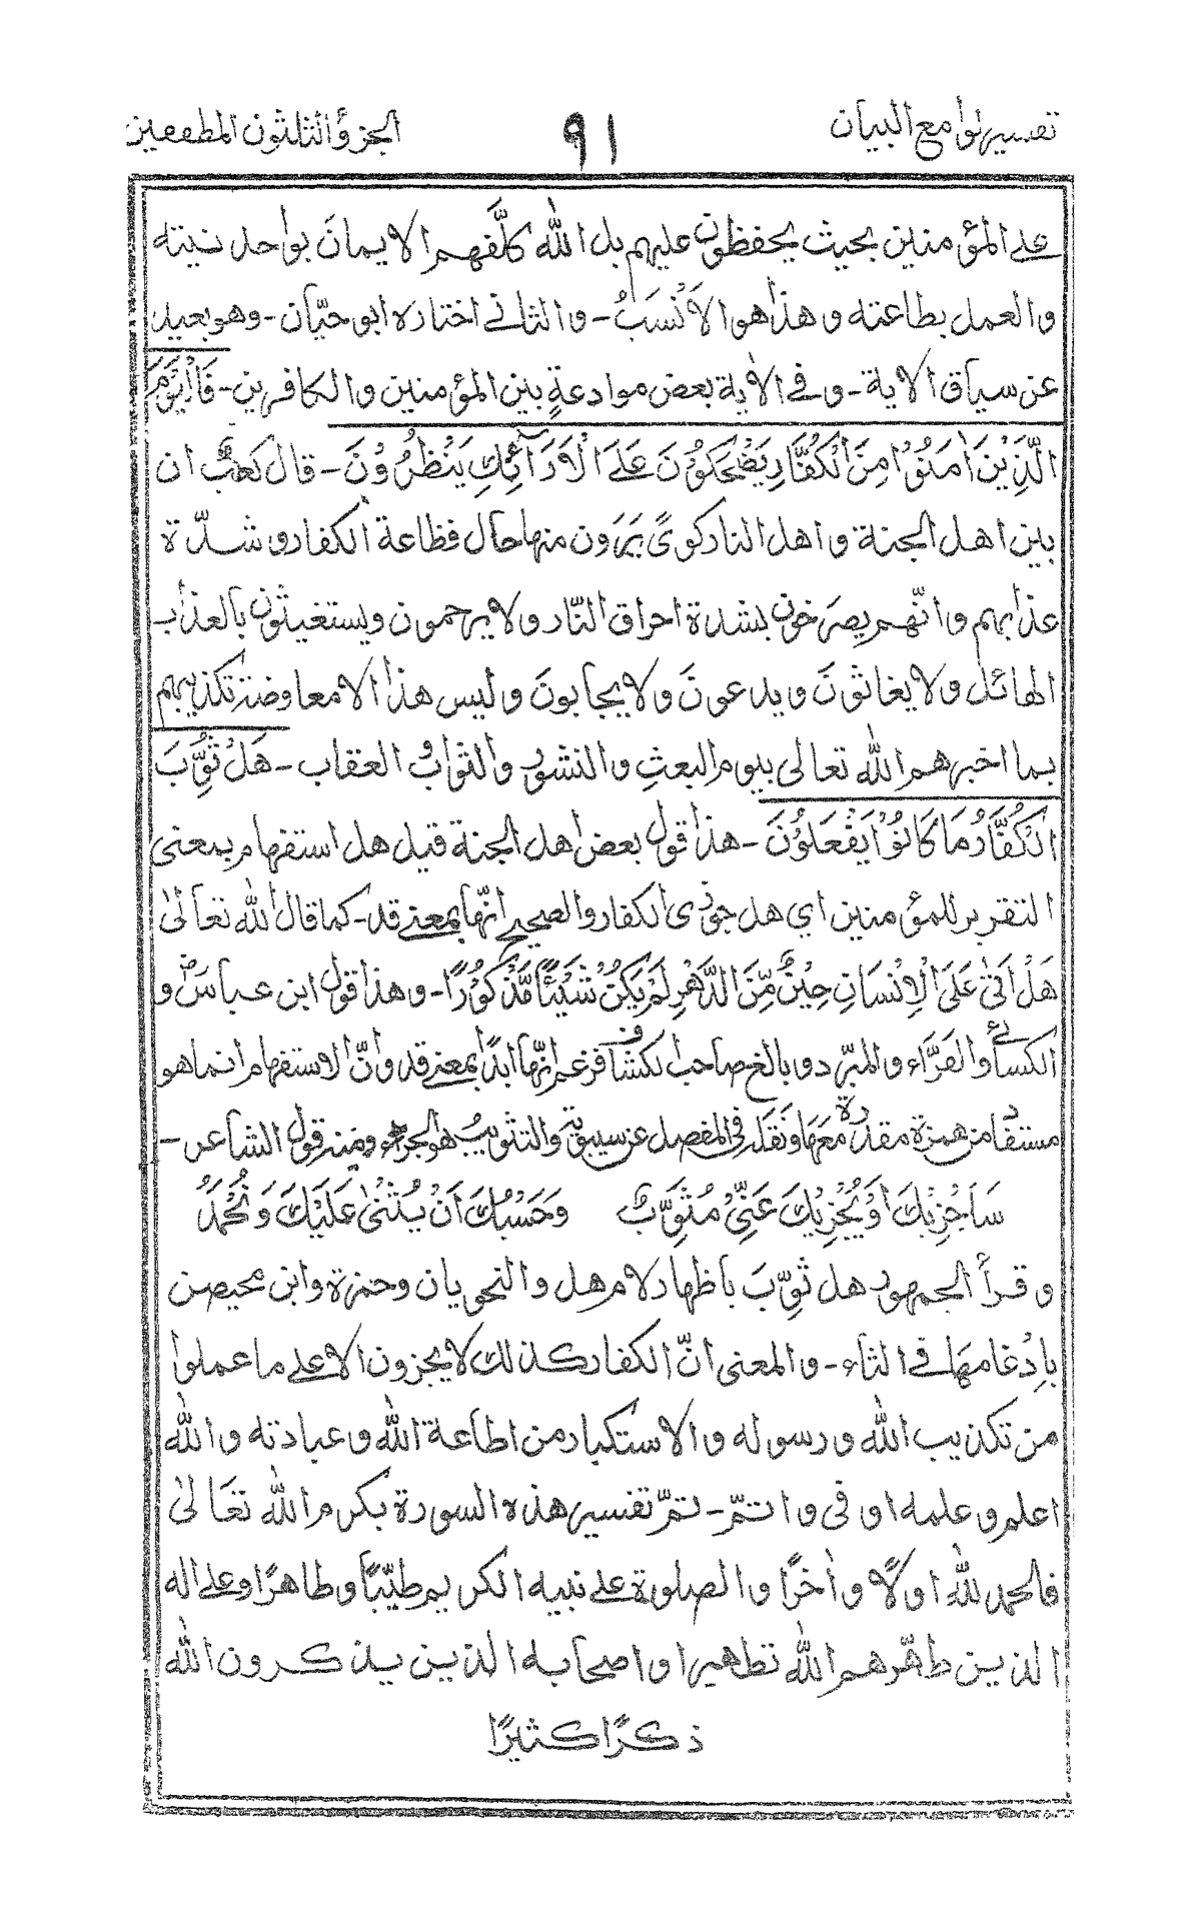 تفسير لوامع البيان ٩١ الجزؤ الثلثون المطففين
على المؤمنين بحيث يحفظون عليهم بل الله كلَّفهم الايمانَ بواحدنيته
والعمل بطاعته وهذا هو الاَنْسَبُ - والثاني اختاره ابوحيّان - وهو بعيد
عن سياق الاية - وفي الاٰية بعض موادعةٍ بين المؤمنين والكافرين - فَالْيَوْمَ
الَّذِيْنَ اٰمَنُوْا مِنَ الْكُفَّارِ يَضْحَكُوْنَ عَلَى الْاَرَآئِكِ يَنْظُرُوْنَ - قال كعبؓ ان
بين اهل الجنة واهل النار كوىً يَرَوْن منها حال فظاعة الكفار وشدّة
عذابهم وانّهم يصرَخون بشدة احراق النّار ولا يرحمون ويستغيثون بالعذاب
الهائل ولا يغاثونَ ويدعونَ ولا يجابونَ وليس هذا الا معاوضة تكذيبهم
بما اخبرهم الله تعالى بيوم البعثِ والنشور والثواب والعقاب - هَلْ ثُوِّبَ
الْكُفَّارُ مَا كَانُوْا يَفْعَلُوْنَ - هذا قول بعض اهل الجنة قيل هل استفهام بمعنى
التقرير للمؤمنين اي هل جوزى الكفار والصحيح انّها بمعنى قد - كما قال الله تعَالىٰ
هَلْ اَتٰى عَلَى الْاِنْسَانِ حِيْنٌ مِّنَ الدَّهْرِ لَمْ يَكُنْ شَيْئًا مَّذْكُوْرًا - وهذا قول ابن عباسؓ و
الكسائي والفرَّاء والمبرّد وبالغ صاحب الكشاف فزعم انّها ابدًا بمعنى قد وانّ الاستفهام انما هو
مستفاد من همزة مقدرة معها ونقله فى المفصل عن سيبويه والتثويبُ هو الجزاء ومنه قول الشاعر -
سَاَجْزِيْكَ اَوْ يُجْزِيْكَ عَنِّيْ مُثَوِّبٌ وَحَسْبُكَ اَنْ يُثْنٰى عَلَيْكَ وَتُحْمَدُ
وقرأ الجمهور هل ثوِّبَ باظهار لام هل والنحويان وحمزة وابن محيصن
بادغامها في الثاء - والمعنى انّ الكفار كذلك لا يجزون الا على ما عملوا
من تكذيب الله ورسوله والاستكبار من اطاعة الله وعبادته والله
اعلم وعلمه اوفى واتمّ - تمّ تفسير هذه السورة بكرم الله تعَالىٰ
فالحمد لله اولًا واٰخرًا والصلوة على نبيه الكريم طيّبًا وطاهرًا وعلى اله
الذين طهّرهم الله تطهيرا واصحابه الذين يذكرون الله
ذكرًا كثيرًا